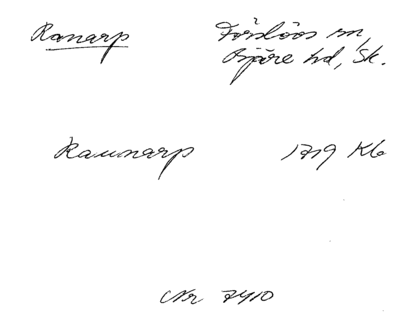 Ranarp Förslövs sn,
Bjäre hd, Sk.
Raunarp 1719 Kb
Nr 7410